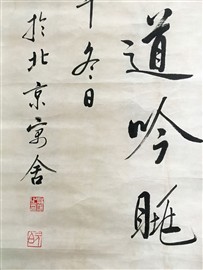 道吟眺
冬日
於北京寓舍